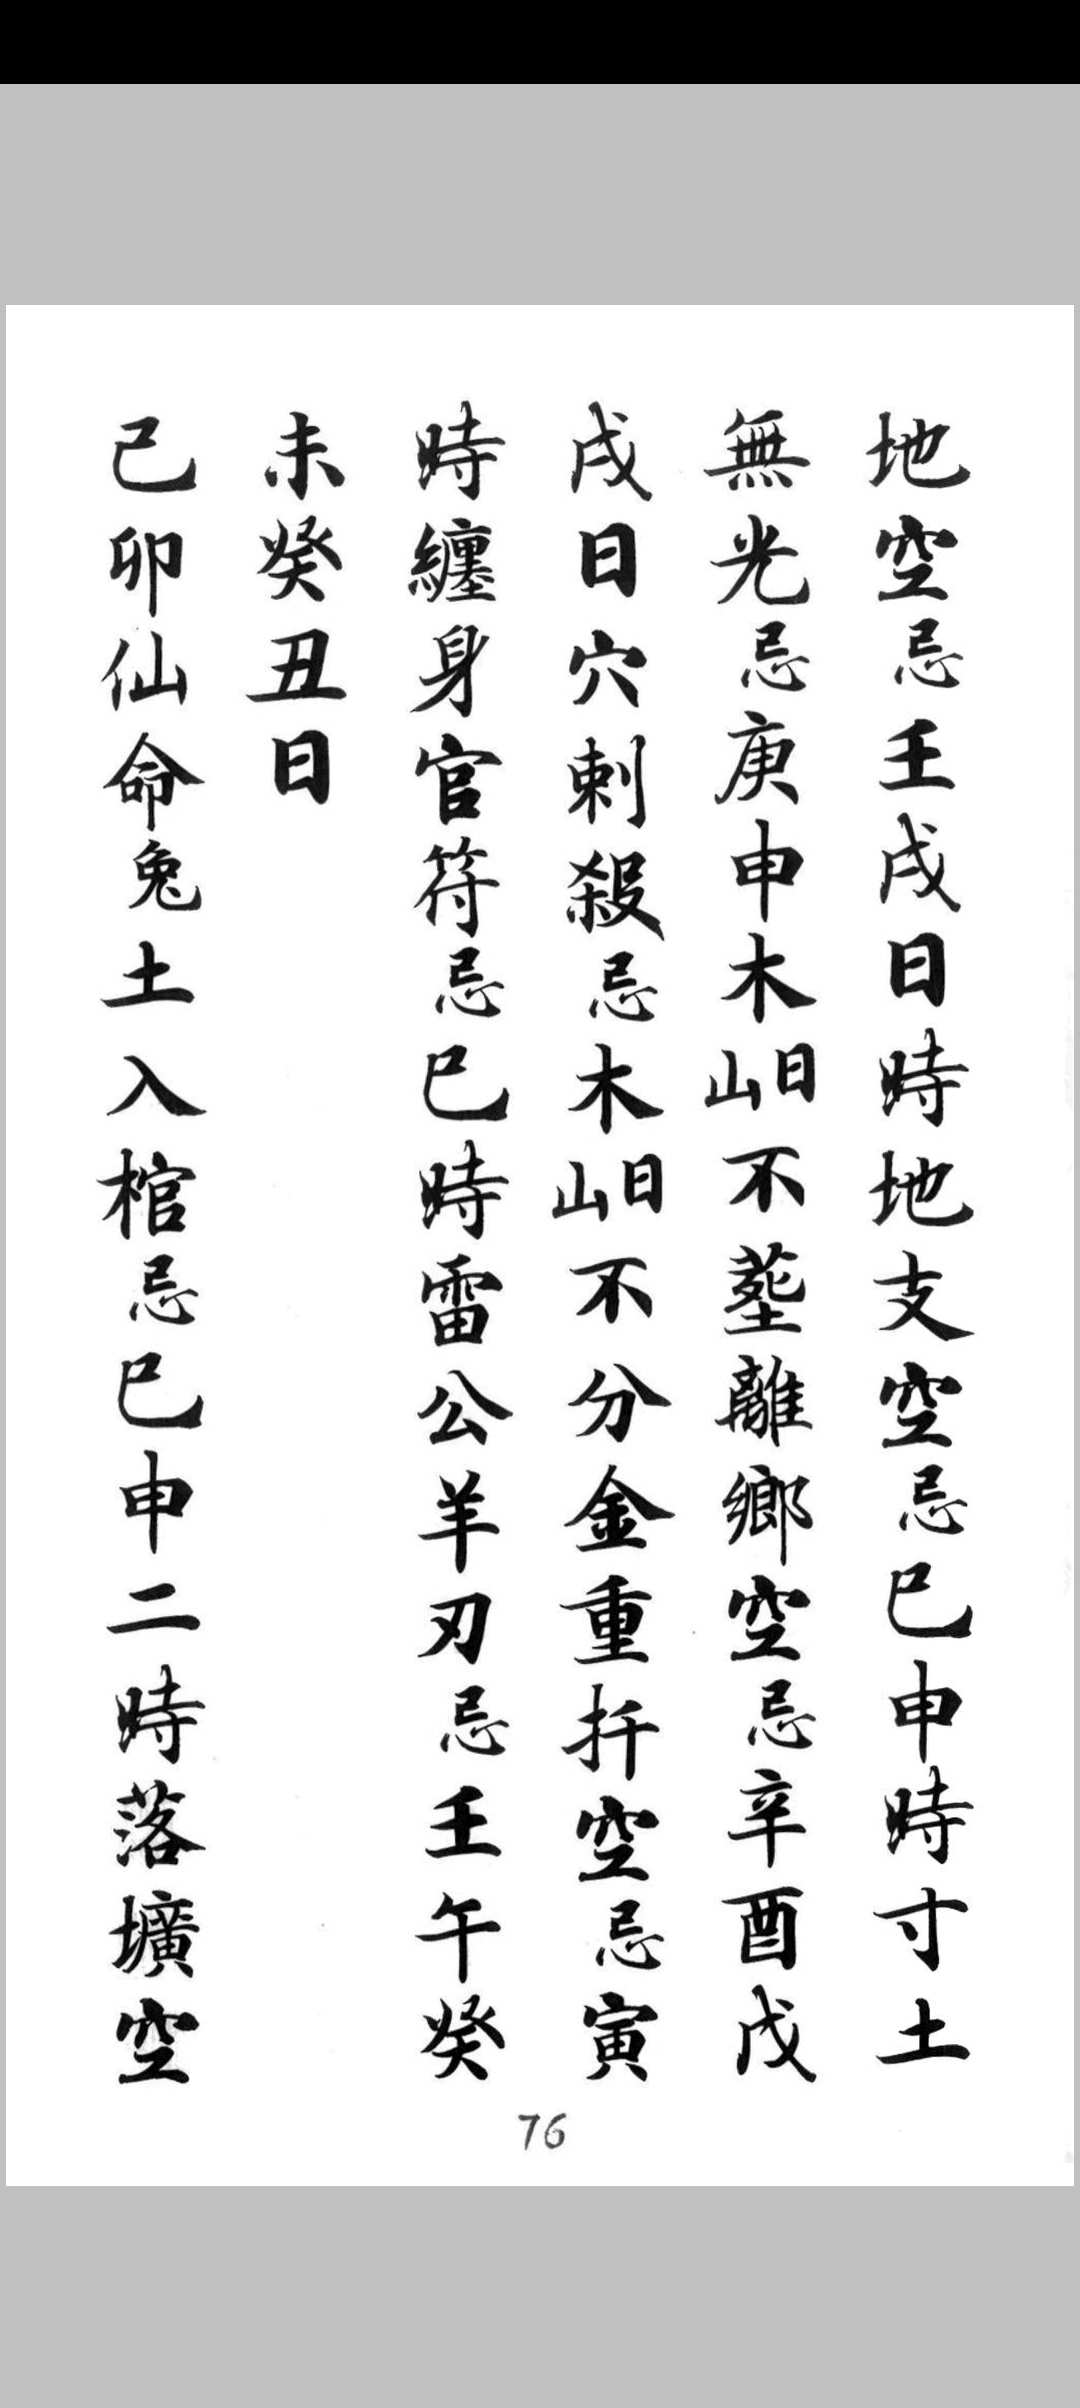 地空忌壬戌日時地支空忌巳申時寸土
無光忌庚申木山日不塟離鄉空忌辛酉戊
戌日穴刺殺忌木山日不分金重扦空忌寅
時纏身官符忌巳時雷公羊刃忌壬午癸
未癸丑日
己卯仙命兔土入棺忌巳申二時落壙空
76